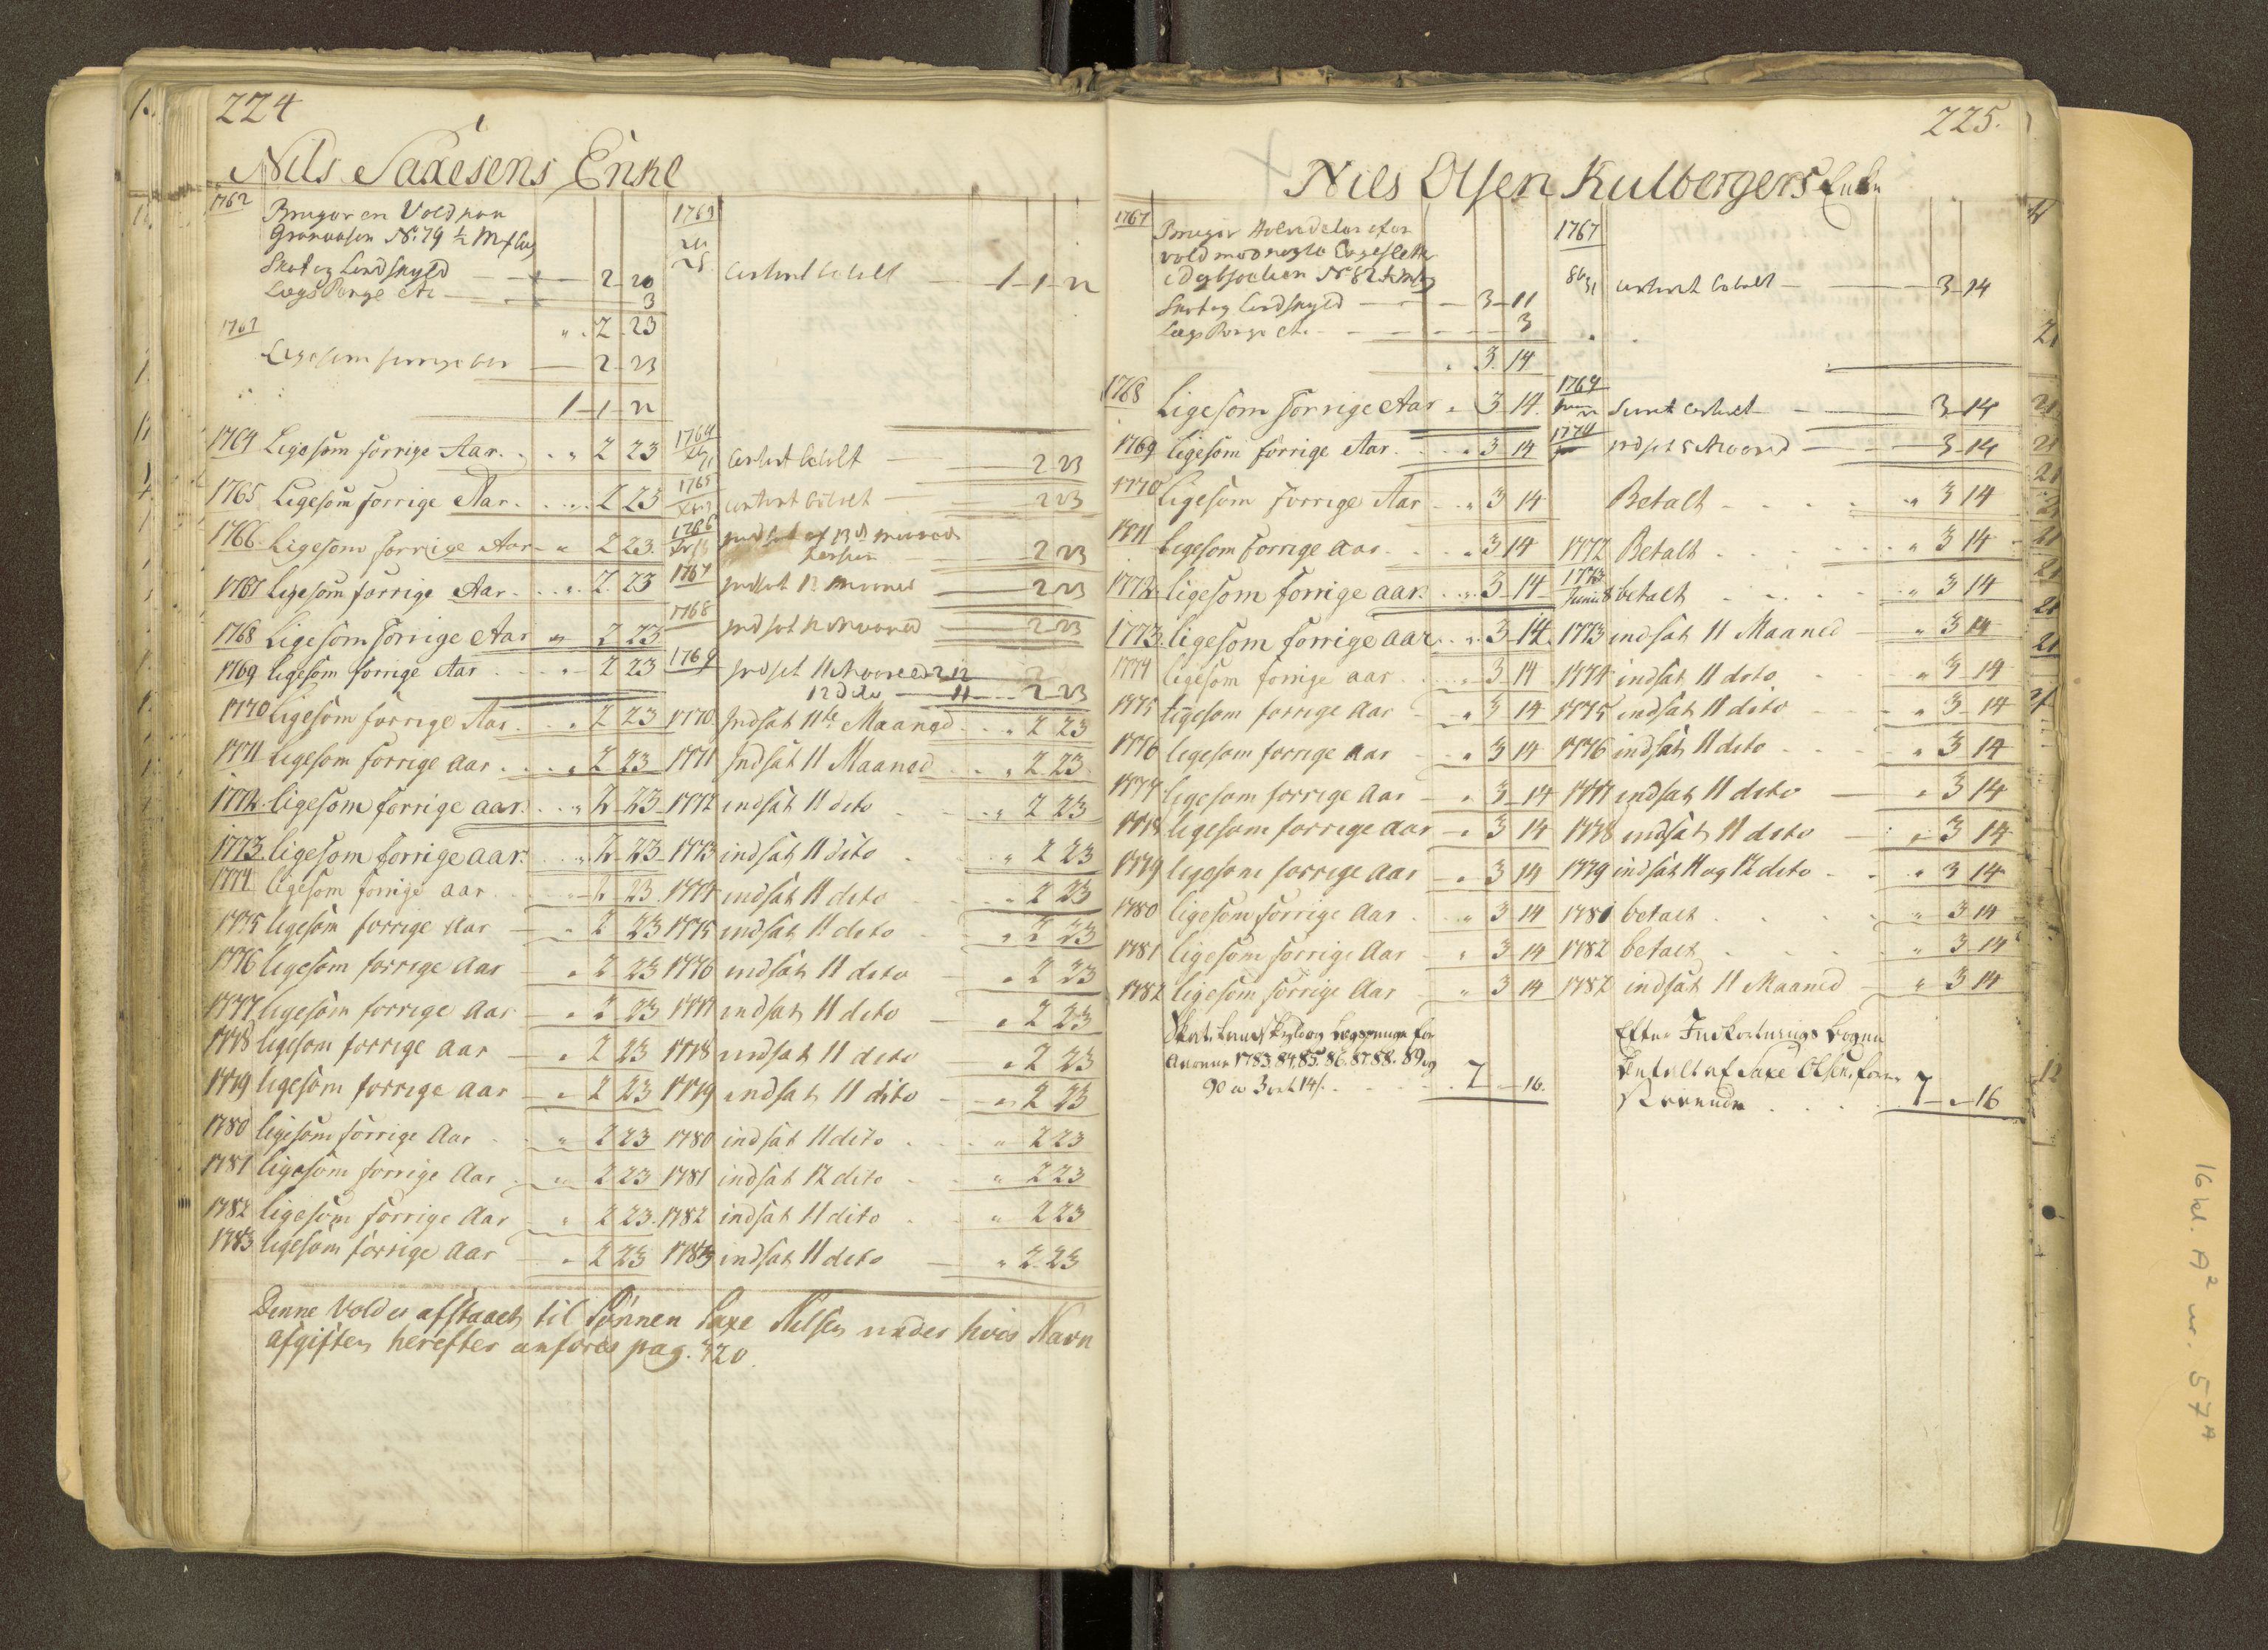 224
Nils Saxesens Enke
1762
Bruger en Vold paa
Graraasen No. 79 ½ Mk
Skat og Landskyld - 2 - 20
Lægs Penge etc - 3
" . 2 - 23
1763
Ligesom forrige Aar - 2 - 23
1 - 1 - 22
1763
contant betalt - 1 - 1 - 22
1764 Ligesom forrige Aar . . " 2 23 1764 contant betalt - 2 23
1765 Ligesom forrige Aar . . " 2 23 1765 contant betalt - 2 23
1766 Ligesom forrige Aar - " 2 23 1766 indsat af 13de Maaned - 2 23
1767 Ligesom forrige Aar . . " 2 23 1767 indsat 12 Maaned - 2 23
1768 Ligesom forrige Aar " 2 23 1768 indsat Maaned - 2 23
1769 ligesom forrige Aar . . " 2 23 1769 indset 11 Maaned 2 12
12 dito - 11 - 2 23
1770 ligesom forrige Aar . . " 2 23 1770 Indsat 11te Maaned . . " 2 23
1771 ligesom forrige aar . . . " 2 23 1771 Indsat 11 Maaned . . " 2 23
1772 ligesom forrige aar . . " 2 23 1772 indsat 11 dito . . " 2 23
1773 ligesom forrige aar . . " 2 23 1773 indsat 11 dito . . " 2 23
1774 ligesom forrige aar . . " 2 23 1774 indsat 11 dito . . " 2 23
1775 ligesom forrige Aar - " 2 23 1775 indsat 11 dito . . " 2 23
1776 ligesom forrige Aar - " 2 23 1776 indsat 11 dito - " 2 23
1777 ligesom forrige Aar - " 2 23 1777 indsat 11 dito - " 2 23
1778 ligesom forrige Aar - " 2 23 1778 indsat 11 dito " 2 23
1779 ligesom forrige Aar - " 2 23 1779 indsat 11 dito - " 2 23
1780 ligesom forrige Aar . " 2 23 1780 indsat 11 dito . . " 2 23
1781 ligesom forrige Aar . " 2 23 1781 indsat 12 dito . . " 2 23
1782 ligesom forrige Aar - " 2 23 1782 indsat 11 dito . . " 2 23
1783 ligesom forrige Aar - " 2 23 1783 indsat 11 dito - " 2 23
Denne Vold er afstaaet til Sønnen Saxe Nilsen under hvis Navn
afgiften herefter anføres pag. 320.
225.
Niels Olsen Kulbergers Enke
1767
Bruger Halvdelen af en
vold med nogle Engesletter
i Dybsøelien No. 82
Skat og Landskyld - 3 - 11
Lægs Penge etc - 3
" 3 . 14
1767
contant betalt - 3 - 14
1768 Ligesom forrige Aar " 3 14 1769 contant - 3 - 14
1769 Ligesom forrige Aar . . " 3 14 1770 indset Maaned - 3 - 14
1770 Ligesom forrige Aar . . " 3 14 Betalt . . . " 3 14
1771 Ligesom forrige Aar . . " 3 14 1772 Betalt . . . " 3 14
1772 ligesom forrige aar . . " 3 14 1773 Junii 8 betalt . . . " 3 14
1773 ligesom forrige aar . . " 3 14 1773 indsat 11 Maaned " 3 14
1774 ligesom forrige aar . . " 3 14 1774 indsat 11 dito . " 3 14
1775 ligesom forrige Aar - " 3 14 1775 indsat 11 dito - " 3 14
1776 ligesom forrige Aar - " 3 14 1776 indsat 11 dito . . " 3 14
1777 ligesom forrige Aar - " 3 14 1777 indsat 11 dito - " 3 14
1778 ligesom forrige Aar - " 3 14 1778 indsat 11 dito - " 3 14
1779 ligesom forrige Aar - " 3 14 1779 indsat 11 og 12 dito - " 3 14
1780 ligesom forrige Aar . " 3 14 1781 betalt . . . " 3 14
1781 ligesom forrige Aar - " 3 14 1782 betalt . . . " 3 14
1782 ligesom forrige Aar - " 3 14 1782 indsat 11 Maaned - " 3 14
Skat, Landskyld og Lægspenge for
Aarene 1783. 84. 85. 86. 87. 88. 89 og
90 a 3 ort 14 s. . . . 7 - " 16.
Efter Inckorterings Bogen
Betalt af Saxe Olsen
7 - " 16
16 kl. A² nr. 57ᴬ